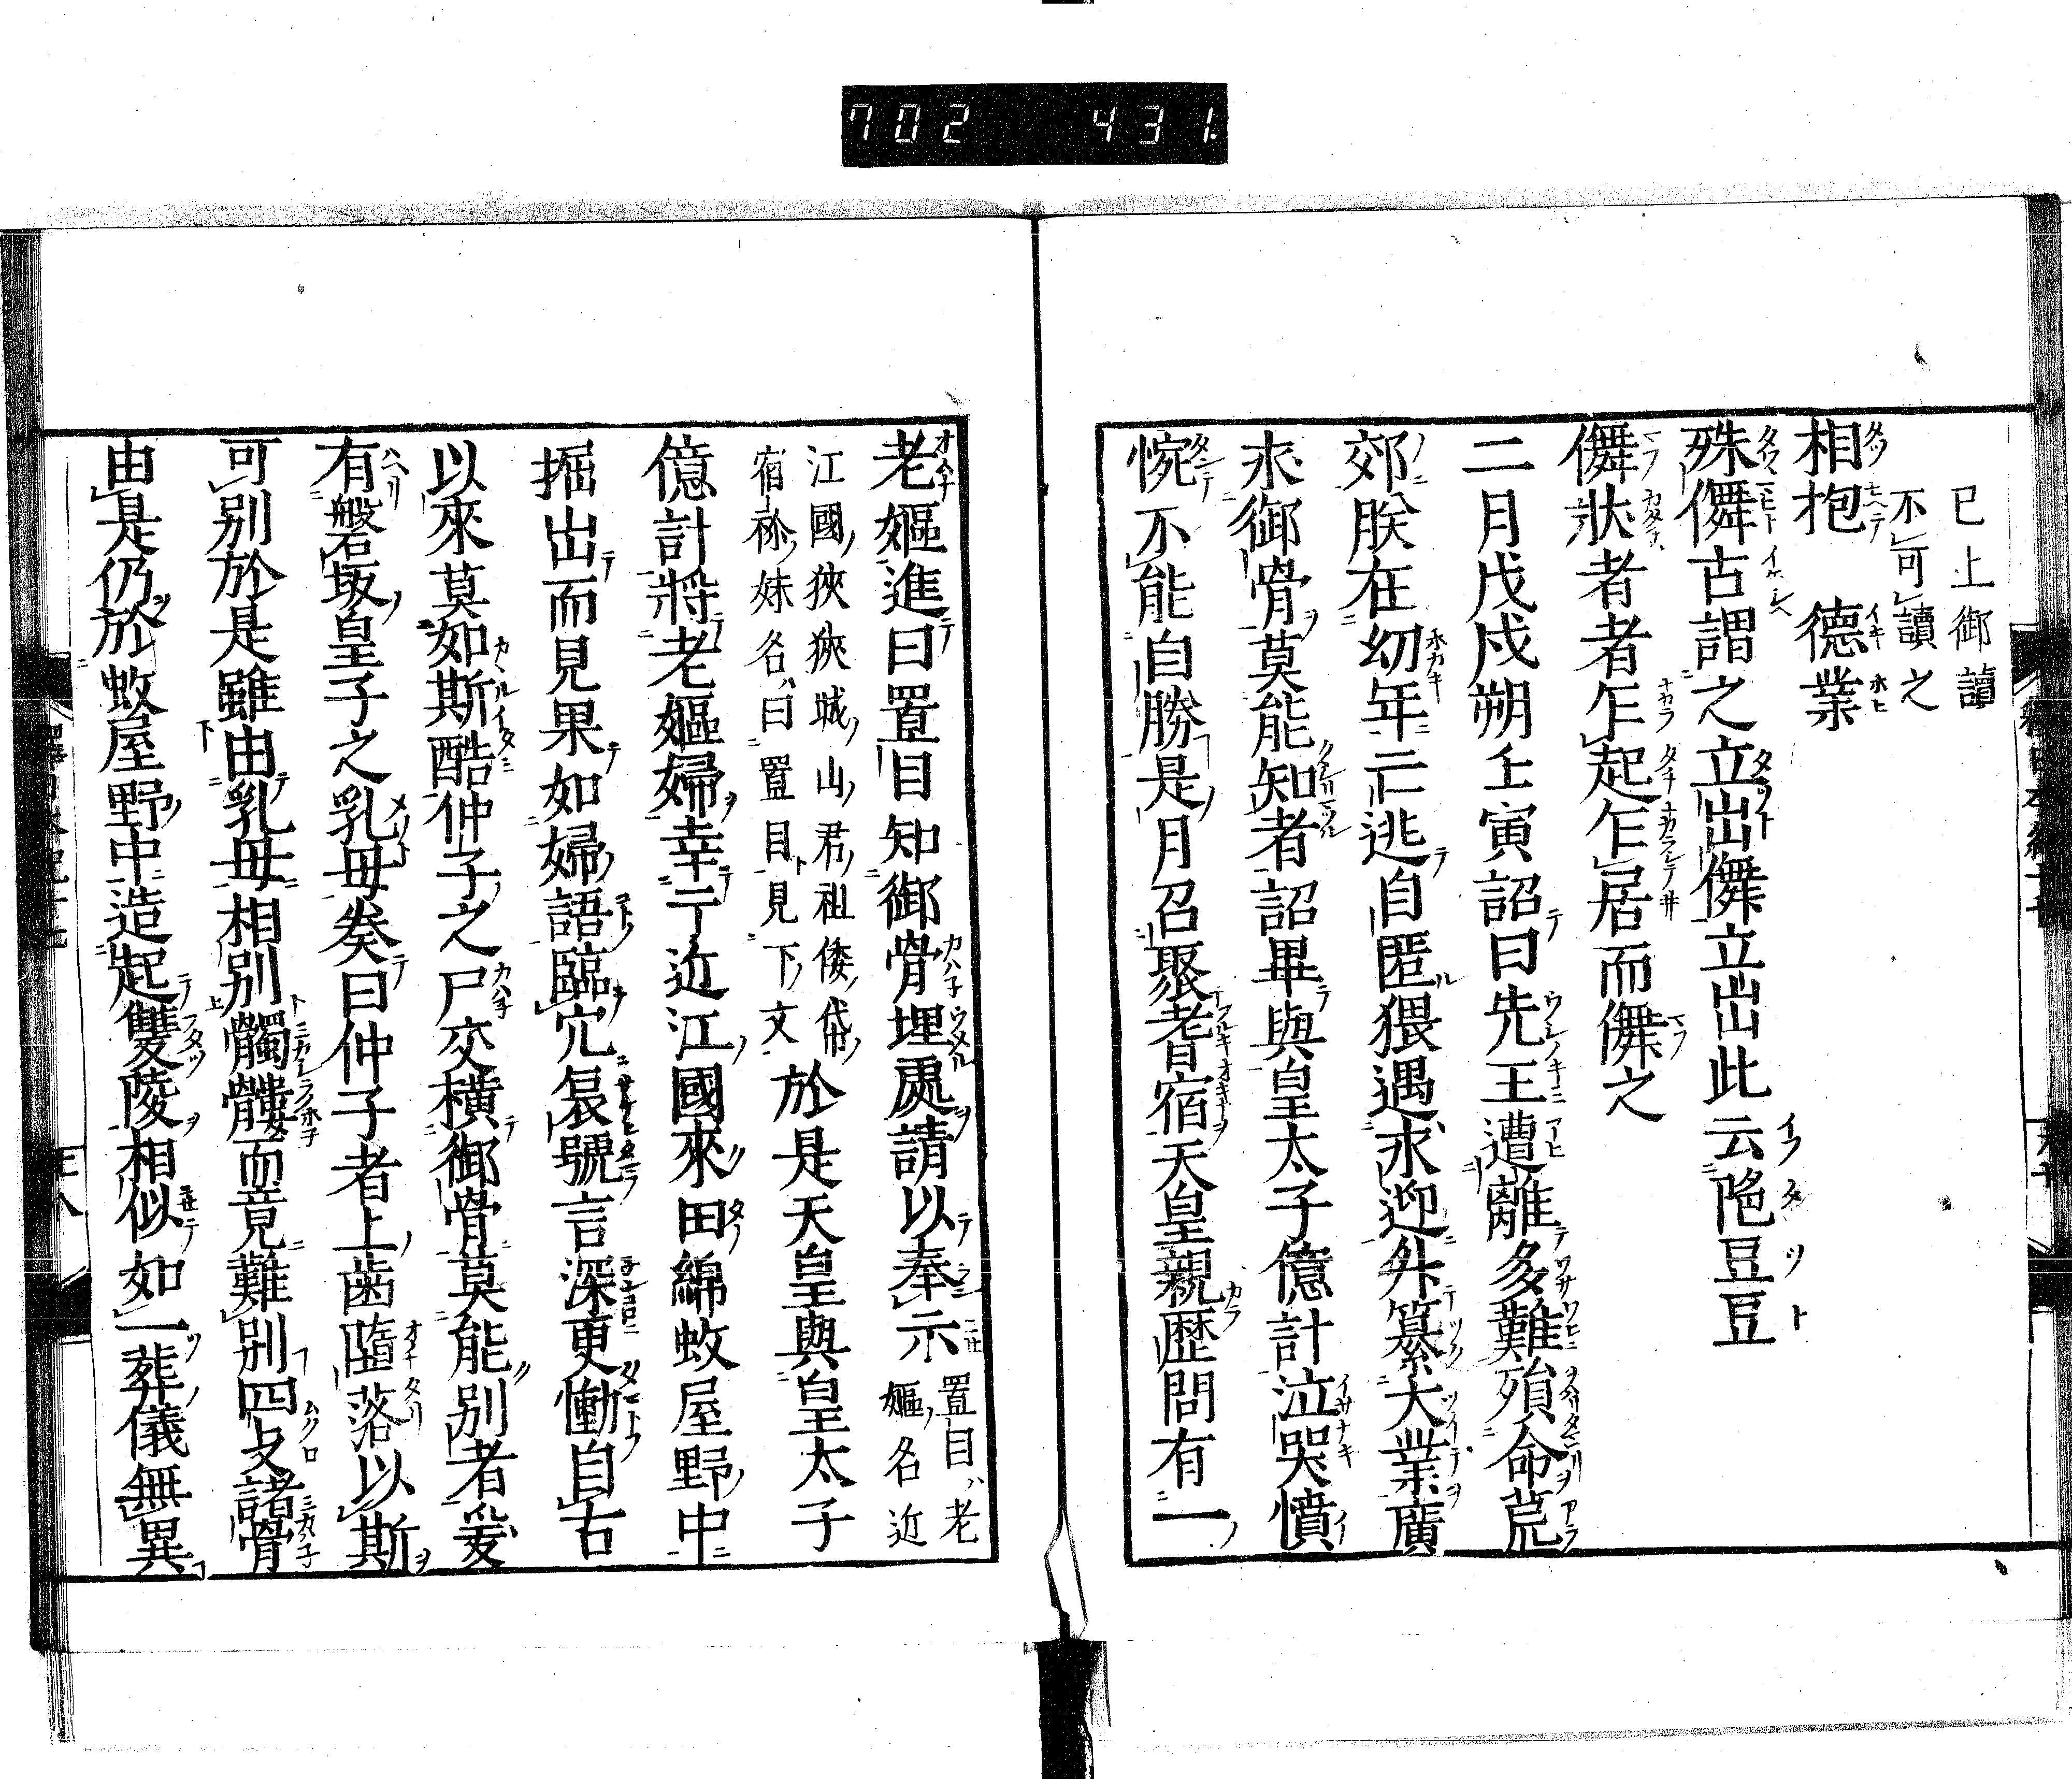 702 431
已上御讀
不可讀之
相抱 德業
殊儛古謂之立出儛立出此云陁豆豆
儛狀者者乍起乍居而儛之
二月戊戌朔壬寅詔曰先王遭離多難殞命荒
郊朕在幼年亡逃自匿猥遇求迎外纂大業廣
求御骨莫能知者詔畢與皇太子億計泣哭憤
惋不能自勝是月召聚耆宿天皇親歴問有一
老嫗進曰置目知御骨埋處請以奉示 置目老
嫗名近
江國狹狹城山君祖倭帒
宿祢妹名曰置目見下文 於是天皇與皇太子
億計將老嫗婦幸于近江國來田綿蚊屋野中
掘出而見果如婦語臨穴哀號言深更慟自古
以來莫如斯酷仲子之尸交橫御骨莫能別者爰
有磐坂皇子之乳母奏曰仲子者上齒墮落以斯
可別於是雖由乳母相別髑髏而竟難別四支諸骨
由是仍於蚊屋野中造起雙陵相似如一葬儀無異